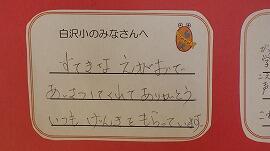 白沢小のみなさんへ
すてきな えがおで
あいさつしてくれて ありがとう
いつも げんきを もらっています